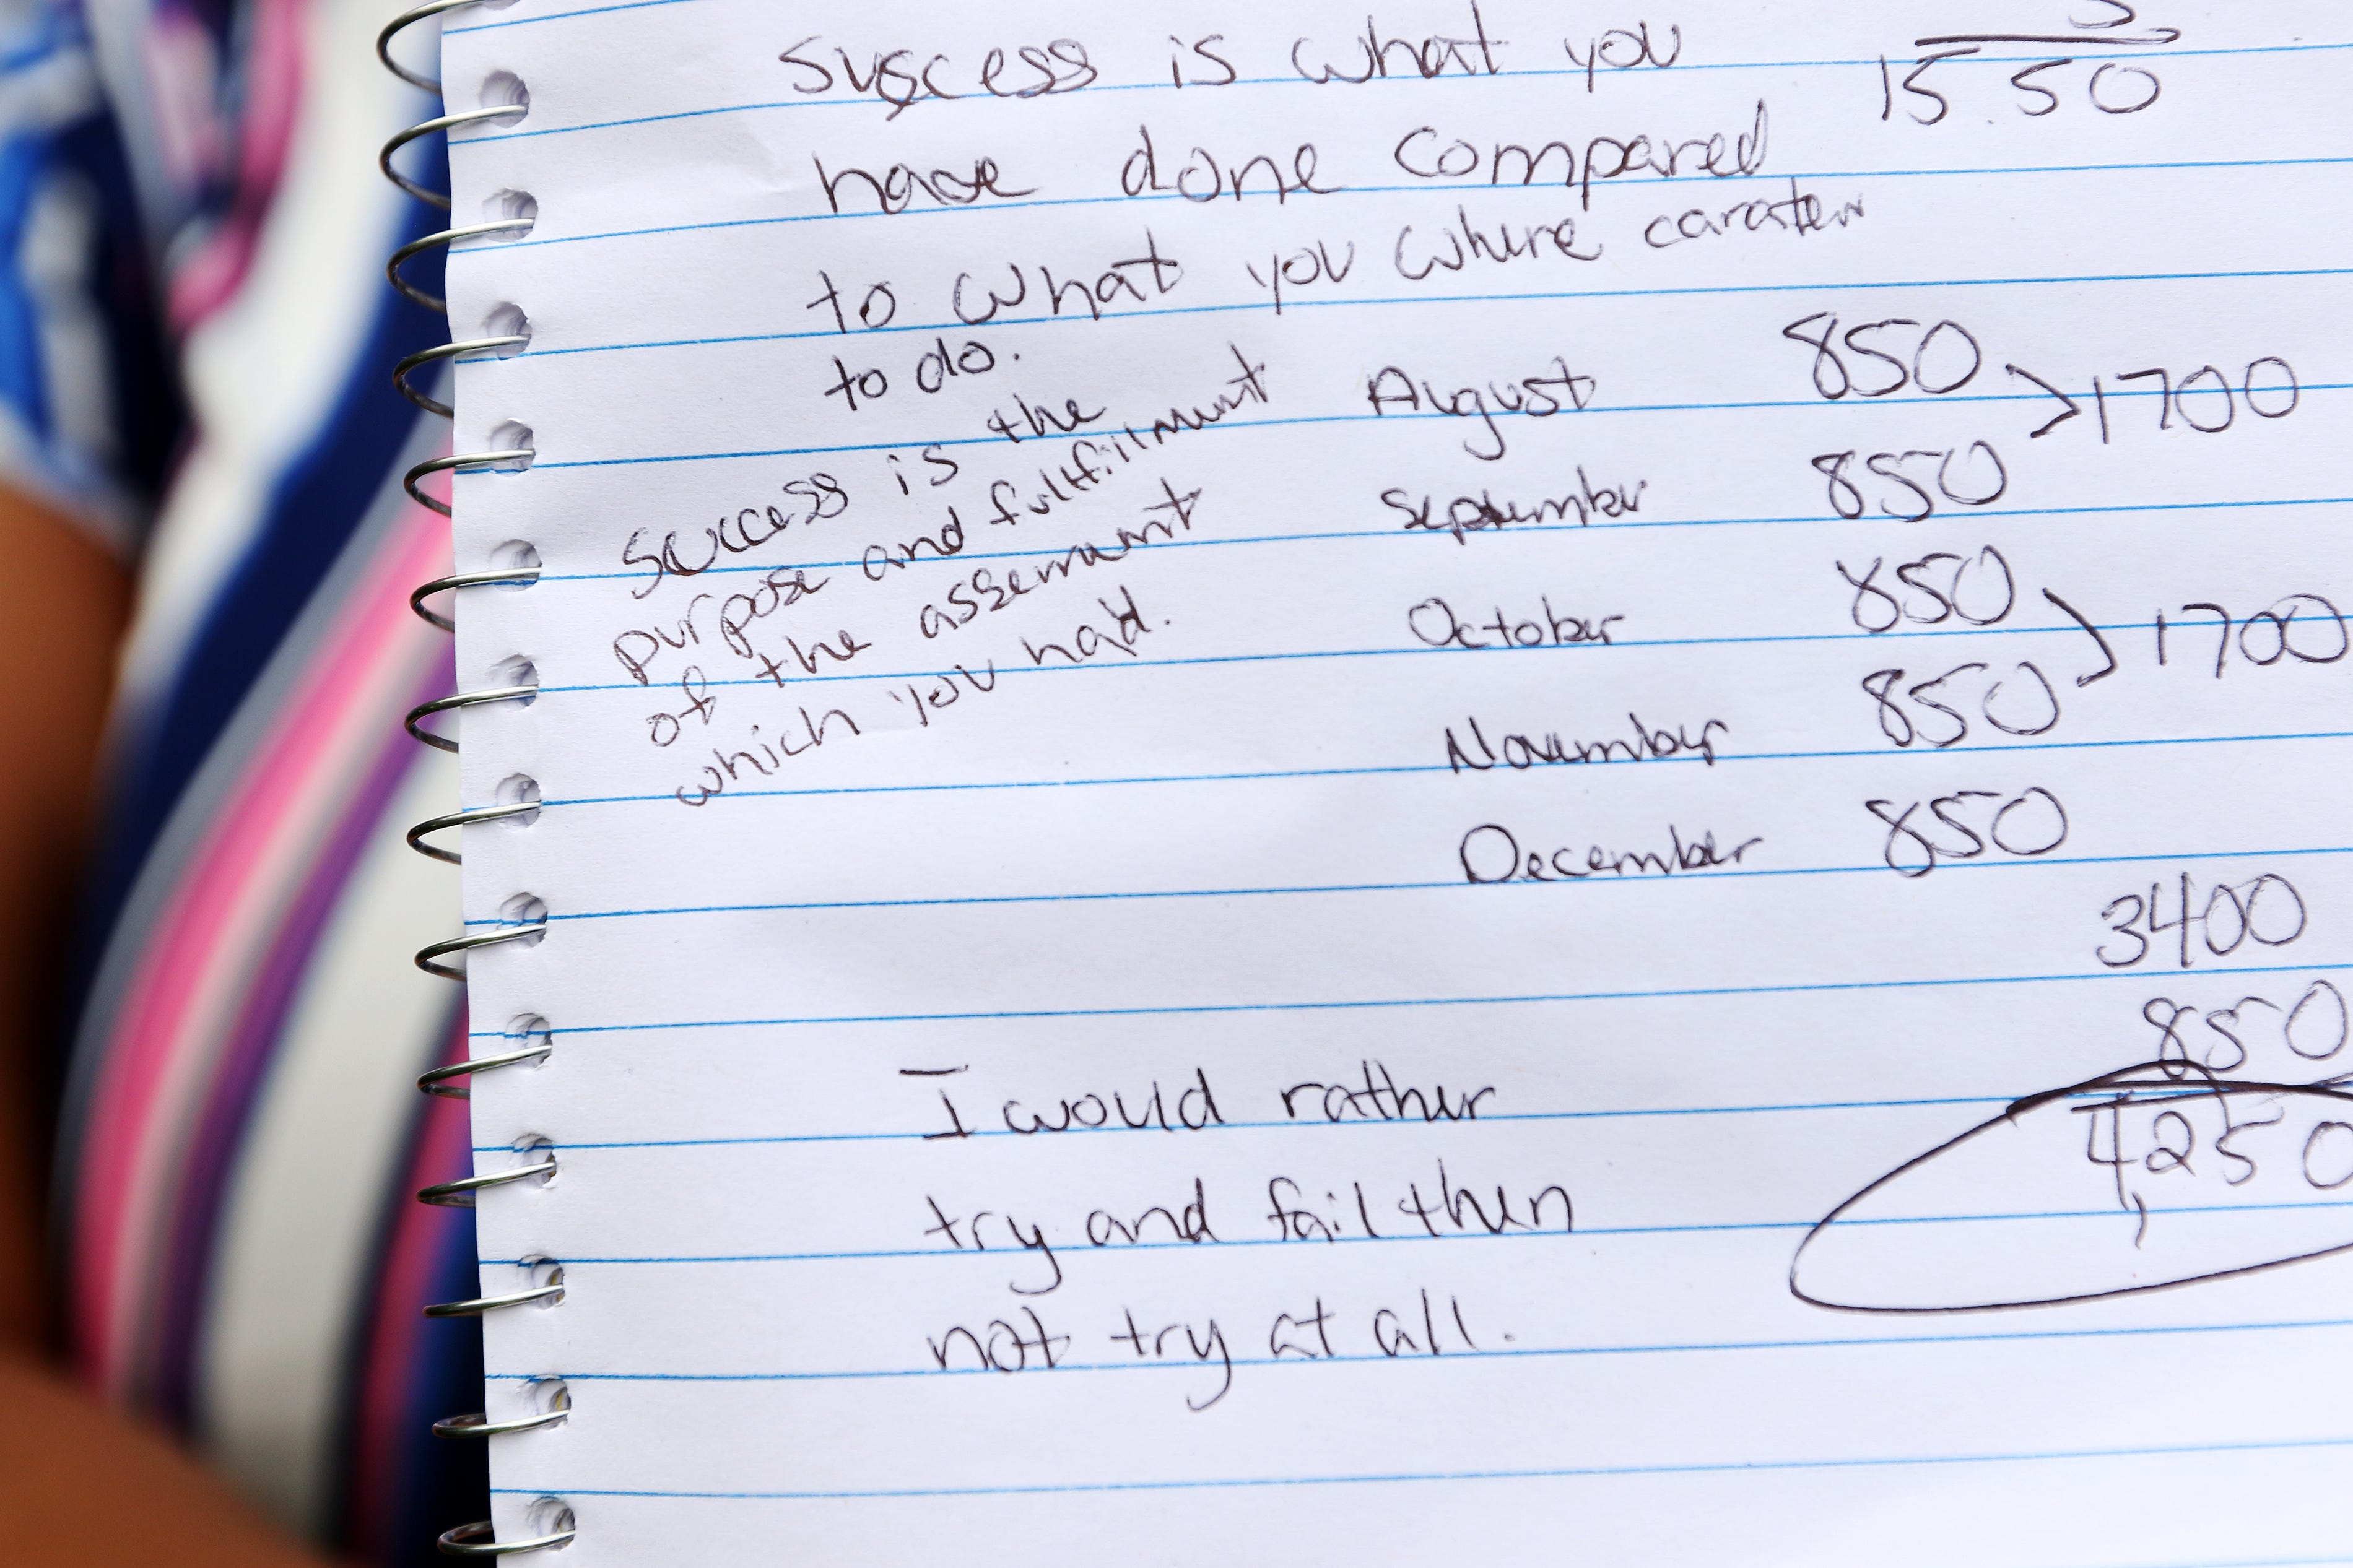 Success is what you
15.50
have done compared
to what you where
to do.
August 850
>1700
September 850
October 850
) 1700
November 850
December 850
3400
850
4,250
Success is the
purpose and fullfillment
of the
which you had.
I would rather
try and fail then
not try at all.